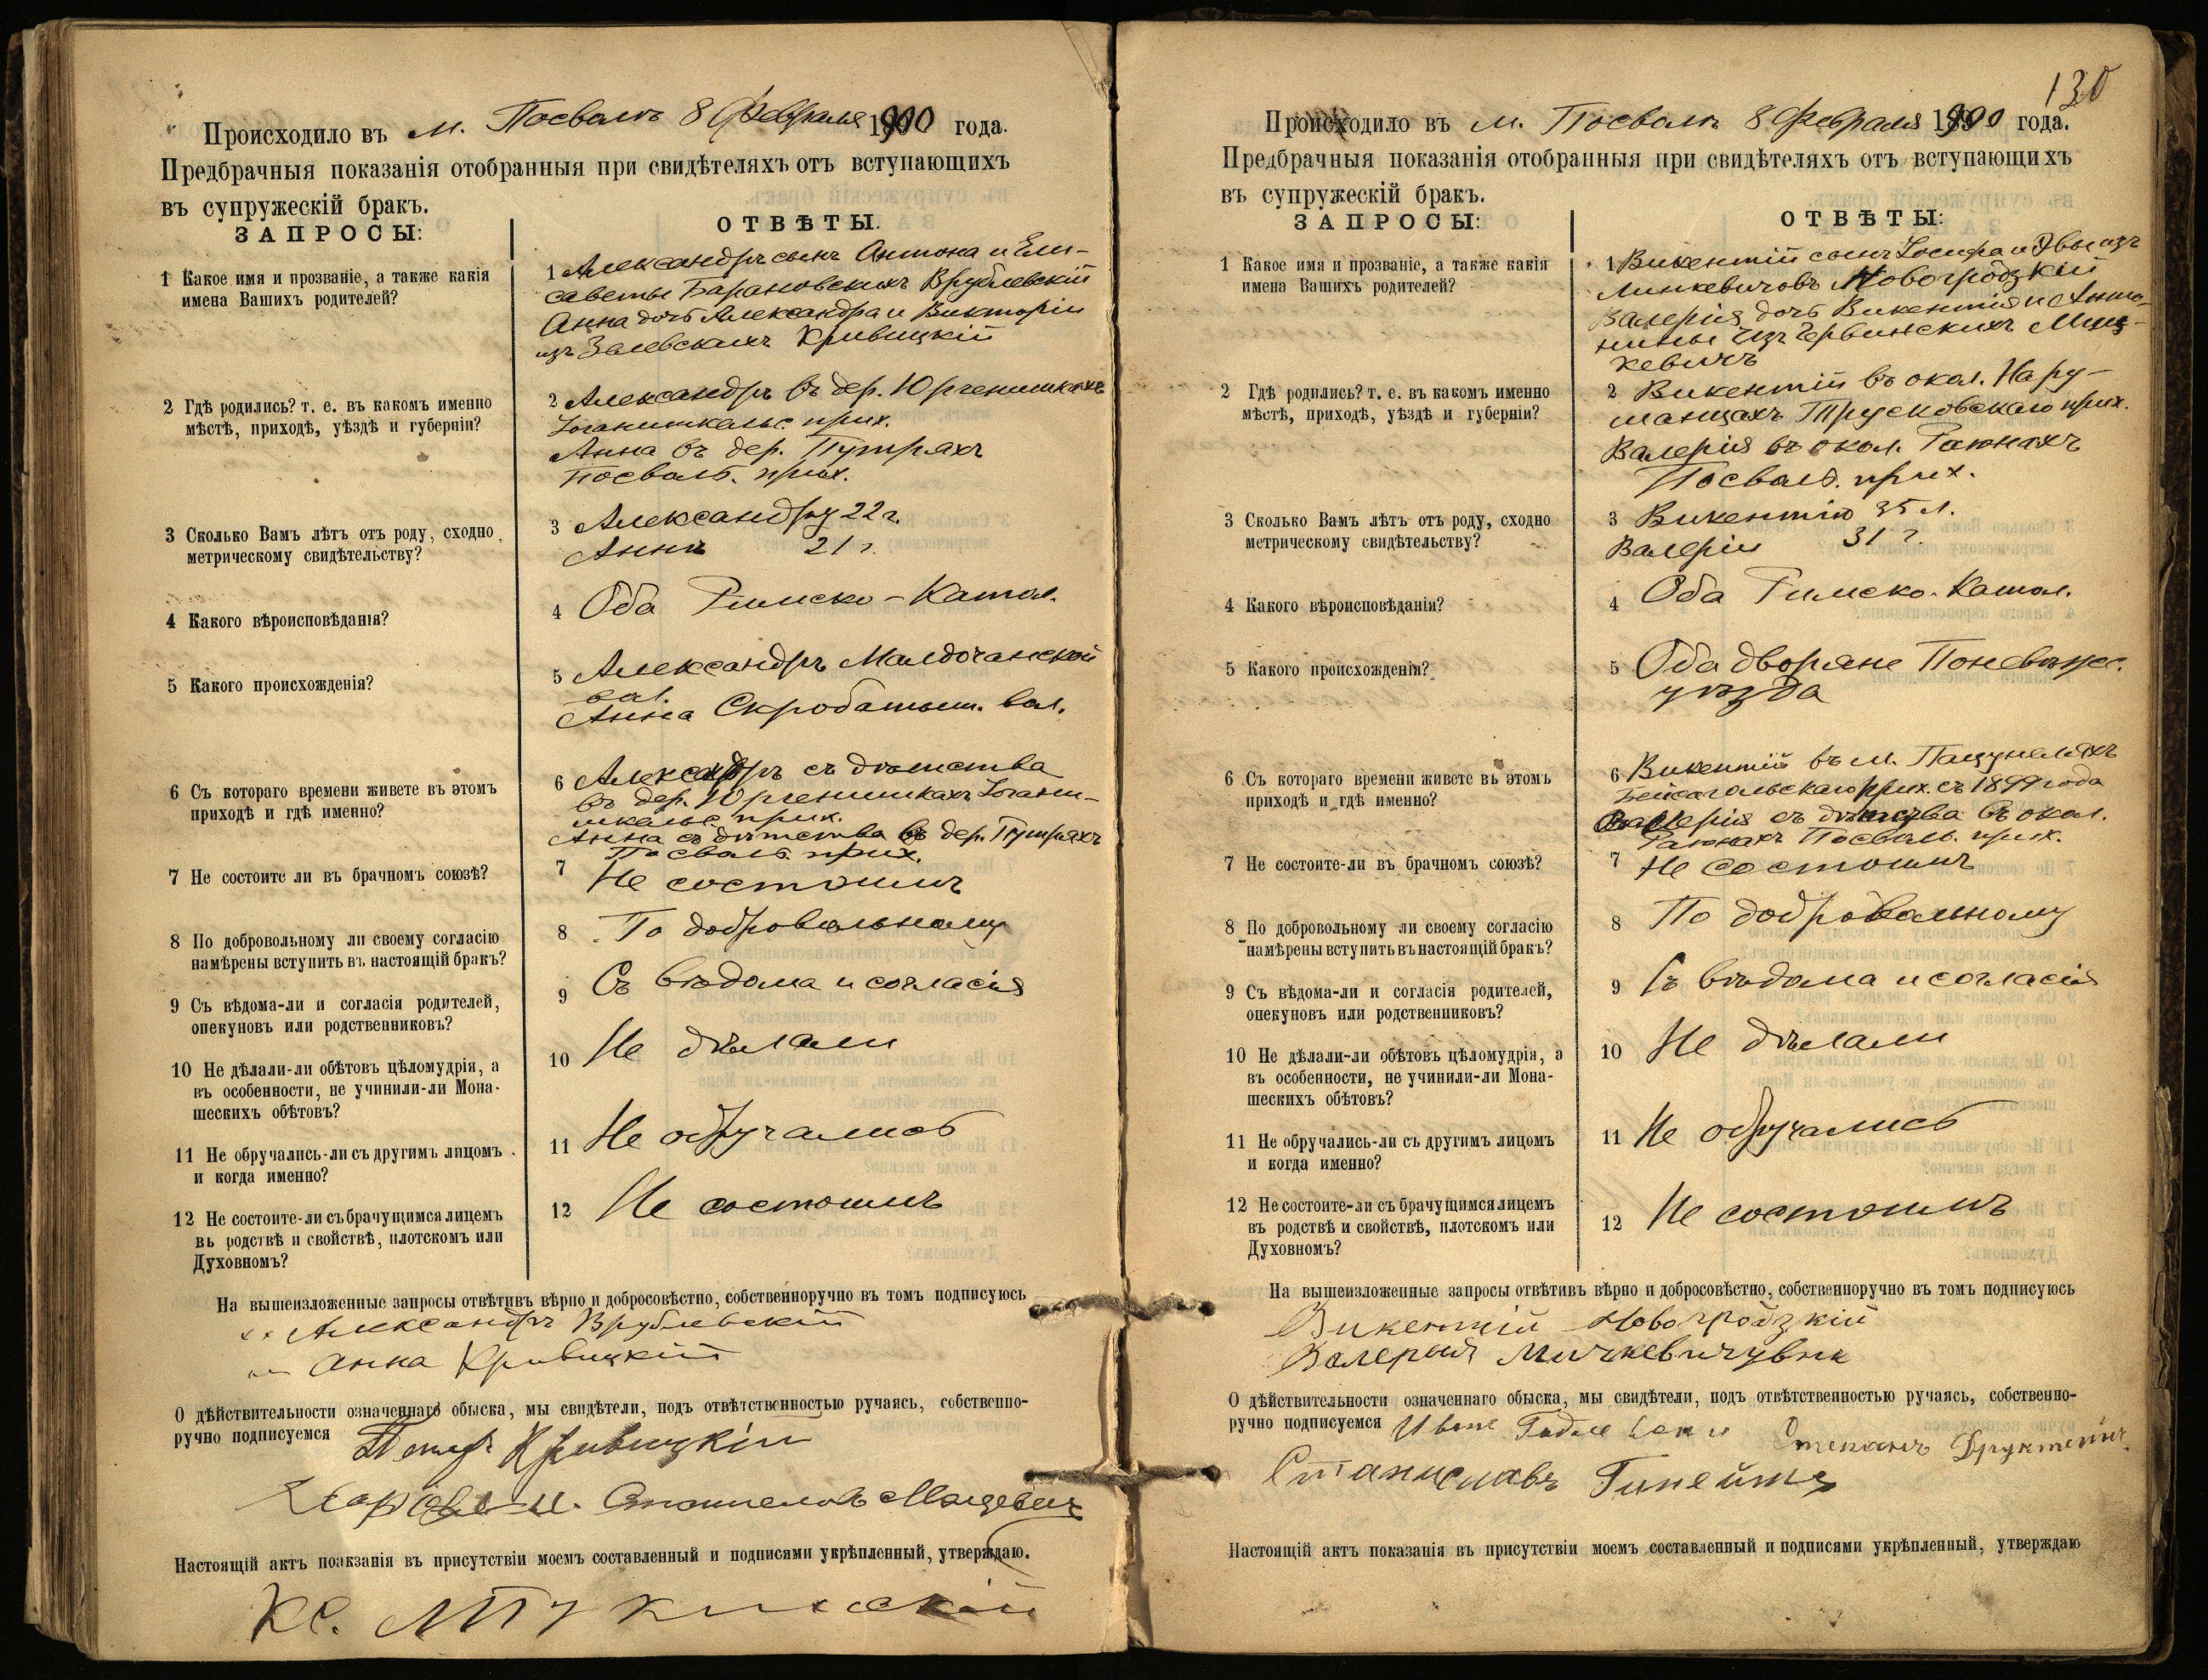 Происходило въ м. Посволь 8 Февраля 1900 года.
Предбрачныя показанія отобранныя при свидѣтеляхъ отъ вступающихъ
въ супружескій бракъ.
ЗАПРОСЫ:
ОТВѢТЫ.
1 Какое имя и прозваніе, а также какія
имена Вашихъ родителей?
1 Александръ сынъ Антона и Ели-
саветы Барановскихъ Врублевскій
Анна дочь Александра и Викторіи
изъ Залевскихъ Кривицкій
2 Гдѣ родились? т. е. въ какомъ именно
мѣстѣ, приходѣ, уѣздѣ и губерніи?
2 Александръ въ дер. Юргенишкахъ
Іоганишкельс. прих.
Анна въ дер. Путряхъ
Посвольс. прих.
3 Сколько Вамъ лѣтъ отъ роду, сходно
метрическому свидѣтельству?
3 Александру 22 г.
Аннѣ 21 г.
4 Какого вѣроисповѣданія?
4 Оба Римско-Катол.
5 Какого происхожденія?
5 Александръ Малдочанской
вол.
Анна Скробатыш. вол.
6 Съ котораго времени живете въ этомъ
приходѣ и гдѣ именно?
6 Александръ съ дѣтства
въ дер. Юргенишкахъ Іогани-
шкельс. прих.
Анна съ дѣтства въ дер. Путряхъ
Посвольс. прих.
7 Не состоите ли въ брачномъ союзѣ?
7 Не состоимъ
8 По добровольному ли своему согласію
намѣрены вступить въ настоящій бракъ?
8 По добровольному
9 Съ вѣдома-ли и согласія родителей,
опекуновъ или родственниковъ?
9 Съ вѣдома и согласія
10 Не дѣлали-ли обѣтовъ цѣломудрія, а
въ особенности, не учинили-ли Мона-
шескихъ обѣтовъ?
10 Не дѣлали
11 Не обручались-ли съ другимъ лицомъ
и когда именно?
11 Не обручались
12 Не состоите-ли съ брачущимся лицемъ
въ родствѣ и свойствѣ, плотскомъ или
Духовномъ?
12 Не состоимъ
На вышеизложенные запросы отвѣтивъ вѣрно и добросовѣстно, собственноручно въ томъ подписуюсь
Александръ Врублевскій
Анна Кривицкій
О дѣйствительности означеннаго обыска, мы свидѣтели, подъ отвѣтственностью ручаясь, собственно-
ручно подписуемся Петръ Кривицкій
Настоящій актъ поакзанія въ присутствіи моемъ составленный и подписями укрѣпленный, утверждаю.
Кс.
130
Происходило въ м. Посволь 8 Февраля 1900 года.
Предбрачныя показанія отобранныя при свидѣтеляхъ отъ вступающихъ
въ супружескій бракъ.
ЗАПРОСЫ:
ОТВѢТЫ:
1 Какое имя и прозваніе, а также какія
имена Вашихъ родителей?
1 Викентій сынъ Іосифа и Эвы изъ
Линкевичовъ Новогродзкій
Валерія дочь Викентія и Анто-
нины изъ Червинскихъ Миц-
кевичъ
2 Гдѣ родились? т. е. въ какомъ именно
мѣстѣ, приходѣ, уѣздѣ и губерніи?
2 Викентій въ окол. Нару-
шанцахъ Трусковскаго прих.
Валерія въ окол. Раюнахъ
Посвольс. прих.
3 Сколько Вамъ лѣтъ отъ роду, сходно
метрическому свидѣтельству?
3 Викентію 35 л.
Валеріи 31 г.
4 Какого вѣроисповѣданія?
4 Оба Римско-Катол.
5 Какого происхожденія?
5 Оба дворяне Поневѣжс.
уѣзда
6 Съ котораго времени живете въ этомъ
приходѣ и гдѣ именно?
6 Викентій въ м. Пацунеляхъ
Бейсагольскаго прих. съ 1899 года
Валерія съ дѣтства въ окол.
Раюнахъ Посвольс. прих.
7 Не состоите-ли въ брачномъ союзѣ?
7 Не состоимъ
8 По добровольному ли своему согласію
намѣрены вступить въ настоящій бракъ?
8 По добровольному
9 Съ вѣдома-ли и согласія родителей,
опекуновъ или родственниковъ?
9 Съ вѣдома и согласія
10 Не дѣлали-ли обѣтовъ цѣломудрія, а
въ особенности, не учинили-ли Мона-
шескихъ обѣтовъ?
10 Не дѣлали
11 Не обручались-ли съ другимъ лицомъ
и когда именно?
11 Не обручались
12 Не состоите-ли съ брачущимся лицемъ
въ родствѣ и свойствѣ, плотскомъ или
Духовномъ?
12 Не состоимъ
На вышеизложенные запросы отвѣтивъ вѣрно и добросовѣстно, собственноручно въ томъ подписуюсь
Викентій Новогродзкій
О дѣйствительности означеннаго обыска, мы свидѣтели, подъ отвѣтственностью ручаясь, собственно-
ручно подписуемся
Станиславъ
Настоящій актъ показанія въ присутствіи моемъ составленный и подписями укрѣпленный, утверждаю